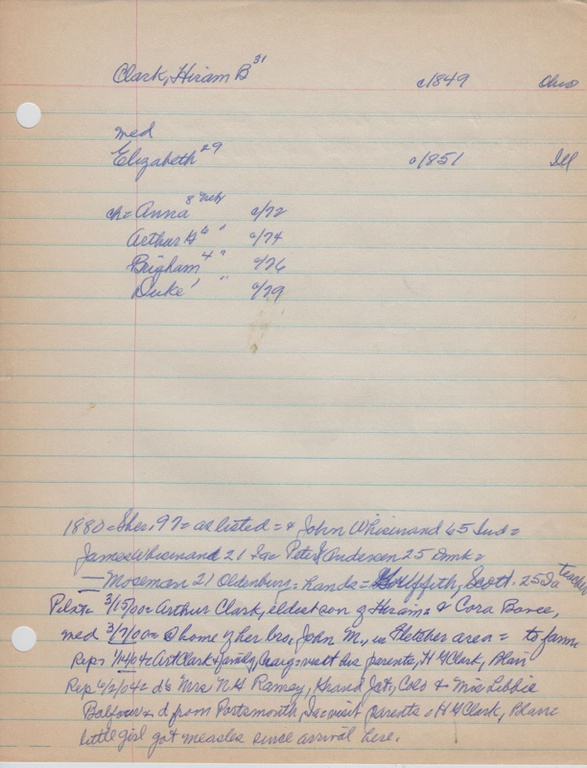 Clark, Hiram B 31 c1849 Ohio
med
Elizabeth 29 c1851 Ill
ch= Anna 8 Neb c/72
Arthur H 6 " c/74
Brigham 4 " c/76
Duke 1 " c/79
1880=Sher. 97= as listed= & John Whisinand 65 Ind=
James Whisinand 21 Ia= Peter Anderson 25 Dmk=
— Moseman 21 Oldenburg= hands= Griffith, Scott. 25 Ia teacher
Pilot= 3/15/00= Arthur Clark, eldest son of Hiram= & Cora
med 3/7/00= @ home of her bro. John M., in Fletcher area= to farm
Rep= 1/14/04= Art Clark & family, Craig= visit his parents, H Clark, Blair
Rep 6/2/04= d= Mrs N H Ramsey, Grand Jct, Colo & Mrs Libbie
Balfour & d from Portsmouth, Ia= visit parents= H Clark, Blair=
little girl got measles since arrival here.